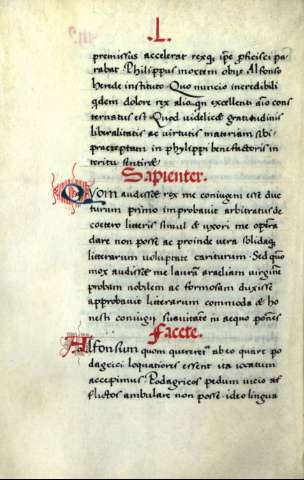 .L.
premissus accelerat rexq; ipse proficisci pa
rabat. Philippus mortem obijt Alfonso
herede instituto. Quo nuncio incredibili
qdem dolore rex alioqn excellenti aīo cons
ternatus est. Quod videlicet gratitudinis
liberalitatis ac virtutis materiam sibi
praereptam in phylippi benefactoris in
teritu sentiret
Sapienter.
QVom audisset rex me coniugem esse duc
turum primo improbavit arbitratus de
cetero litteris simul & uxori me operā
dare non posse ac proinde vera solidaq;
litterarum voluptate cariturum. Sed quō
mox audisset me lauram arcellam virginē
probam nobilem ac formosam duxisse
approbavit litterarum commoda & ho
nesti coniugij suavitatem in aequo ponēs
Facete.
Alfonsum quom quereret ab eo quare po
dagrici loquatiores essent ita iocatum
accepimus. Podagricos pedum vicio af
flictos ambulare non posse ideo lingua